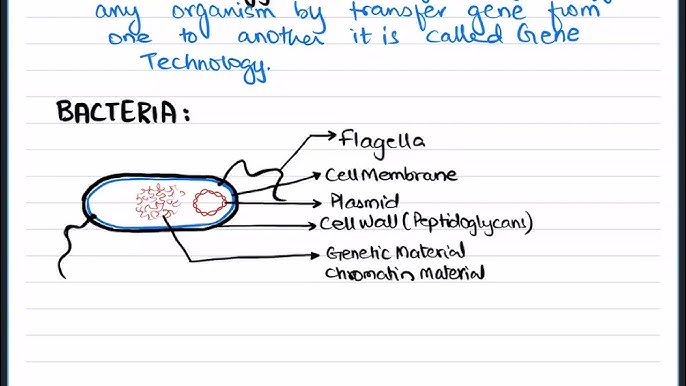 any organism by transfer gene from
one to another it is called Gene
Technology.
BACTERIA:
flagella
Cell Membrane
Plasmid
Cell Wall (Peptidoglycans)
Genetic Material
chromatin material